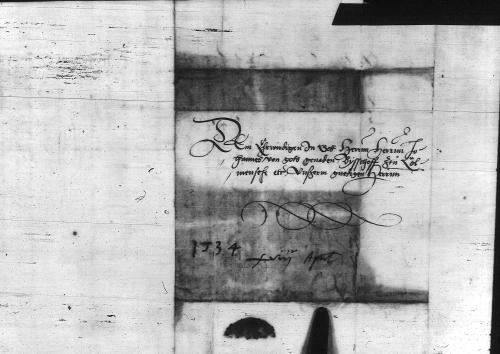 Dem Erwirdigen In Got Herrn Herrn Jo-
hannes von gots gnaden Bisschoff zcu Col-
mensehe etc Unserm gnedigen Herrn
1534
xviij April